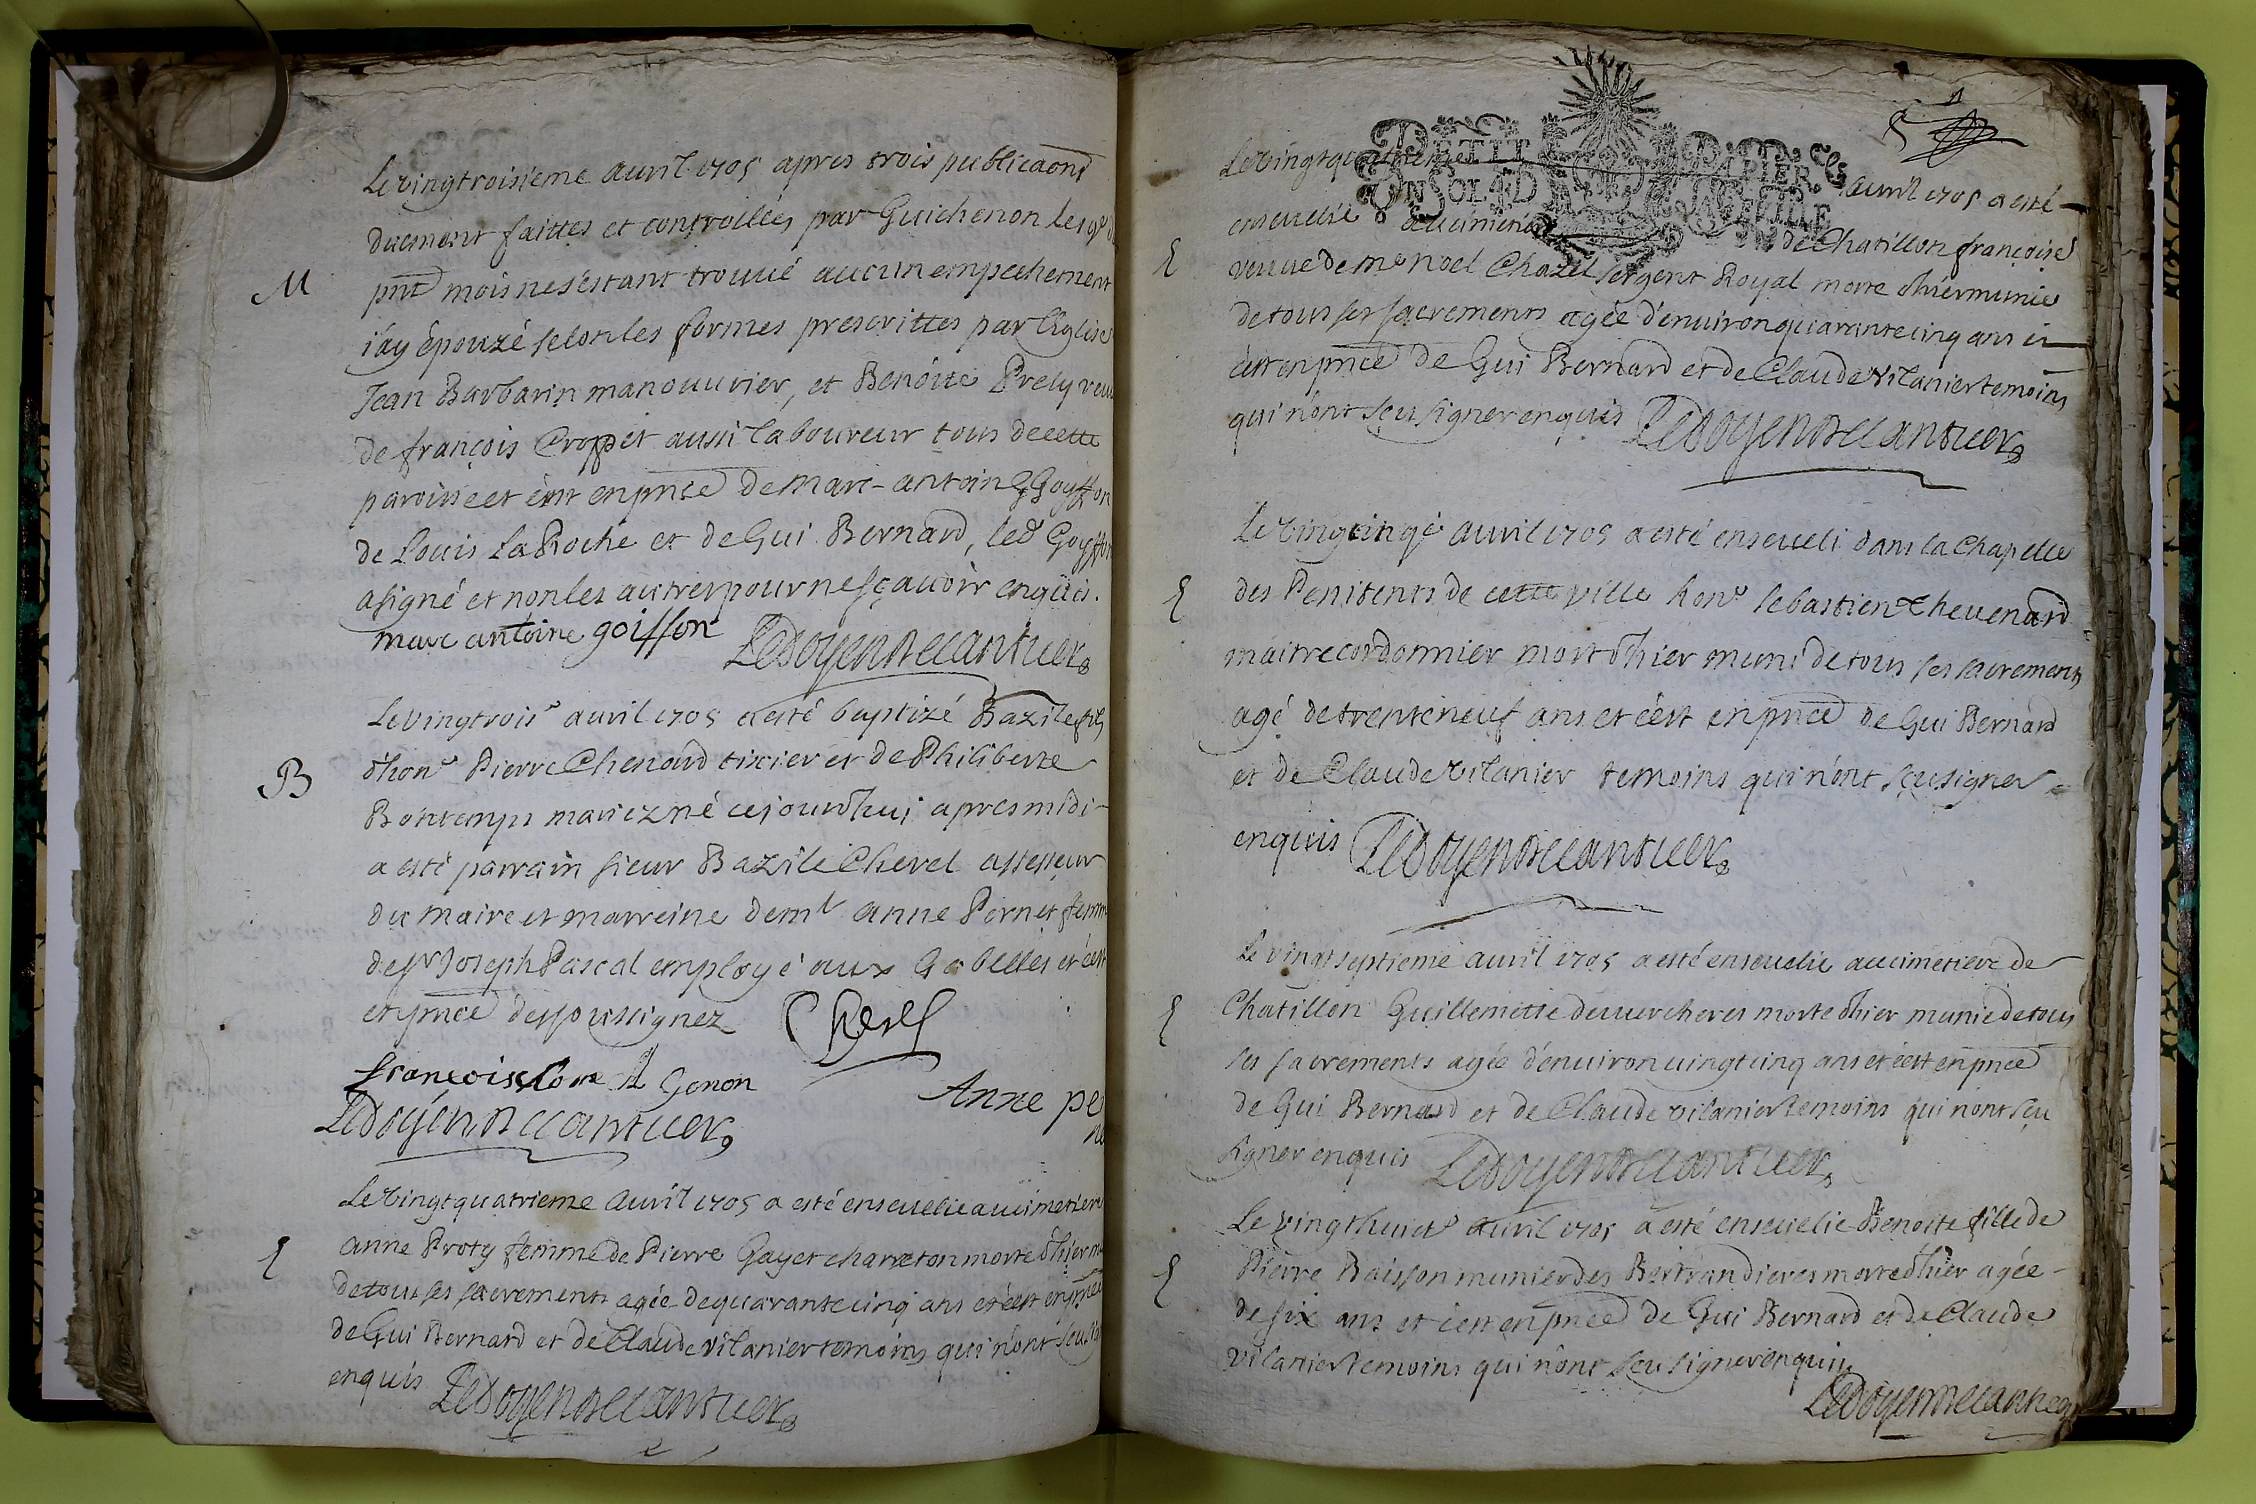 Le vingtroisieme avril 1705 apres trois publicaons
duement faittes et controllées par Guichenon le 19e
M
pnt mois nes'estant trouué aucun empechement
i'ay épouzé selon les formes prescrittes par l'Eglise
Jean Barbarin manouurier, et Benoite Prely
de françois Croppet aussi laboureur tous de cette
paroisse et c'est en pnce de Marc-antoine Goyffon
de Louis La Roche et de Gui Bernard, led Goyffon
a signé et non les autres pour ne sçauoir enquis.
marc antoine goiffon
Ledoyen Mecantuer
Le vingtrois e avril 1705 a esté baptizé Bazile fils
B
d'hon e Pierre Chenard tixier et de Philiberte
Bontemps mariez né cejourd'hui apres midi
a esté parrain sieur Bazile Chevel assesseur
du maire et marreine deml Anne Pernet femm
de sr Joseph Pascal employé aux Gabelles et c'est
en pnce des soussignez
Chevel
francois Gonon
Anne pe
Ledoyen Mecantuer
Le vingtquatrieme avril 1705 a esté enseuelie au cimetiere
E
anne Proty femme de Pierre Gayet charreton morte d'hier
de tous ses sacrements agée de quarante cinq ans et c'est en pnce
de Gui Bernard et de Claude vilanier temoins qui n'ont sceu
enquis
Ledoyen Mecantuer
PETIT PAPIER
UN SOL 4 D LA FEUILLE
Le vingtquatrieme avril 1705 a esté
enseuelie au cimetiere de Chatillon françoise
E
veuue de me noel Chazel sergent Royal morte d'hier munie
de tous ses sacrements agée d'enuiron quarante cinq ans et
c'est en pnce de Gui Bernard et de Claude vilanier temoins
qui n'ont sceu signer enquis
Ledoyen Mecantuer
Le vingcinqe avril 1705 a esté enseueli dans la Chapelle
E
des Penitents de cette ville hone sebastien Theuenard
maitre cordonnier mort d'hier muni de tous ses sacrements
agé de trente neuf ans et c'est en pnce de Gui Bernard
et de Claude vilanier temoins qui n'ont sceu signer
enquis
Ledoyen Mecantuer
Le vingtseptieme avril 1705 a esté enseuelie au cimetiere de
E
Chatillon Guillemette deuuercheres morte d'hier munie de tous
ses sacrements agée d'enuiron uingtcinq ans et c'est en pnce
de Gui Bernard et de Claude vilanier temoins qui n'ont sceu
signer enquis
Ledoyen Mecantuer
Le vingthuicte avril 1705 a esté enseuelie Benoite fille de
E
Pierre Baisson munier des Bertrandieres morte d'hier agée
de six ans et c'est en pnce de Gui Bernard et de Claude
vilanier temoins qui n'ont sceu signer enquis
Ledoyen